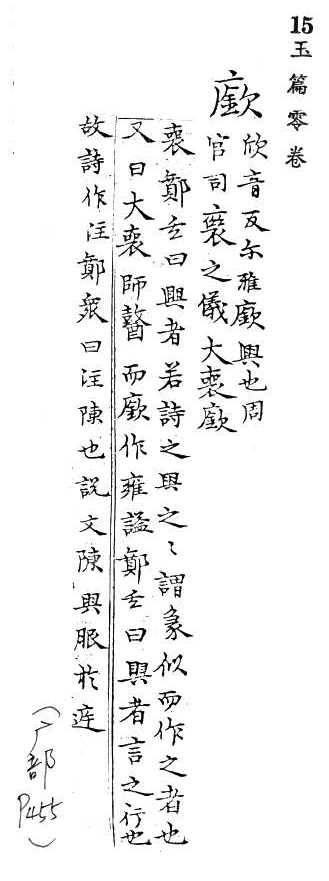 15玉篇零卷
廞
欣音反尓雅廞興也周
官司裘之儀大喪廞
裘鄭玄曰興者若詩之興之〻謂象似而作之者也
又曰大喪師瞽而廞作雍謚鄭玄曰興者言之行也
故詩作汪鄭衆曰汪陳也說文陳輿服於庭
(广部P455)